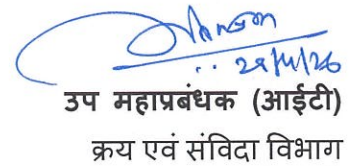 29/4/26
उप महाप्रबंधक (आईटी)
क्रय एवं संविदा विभाग